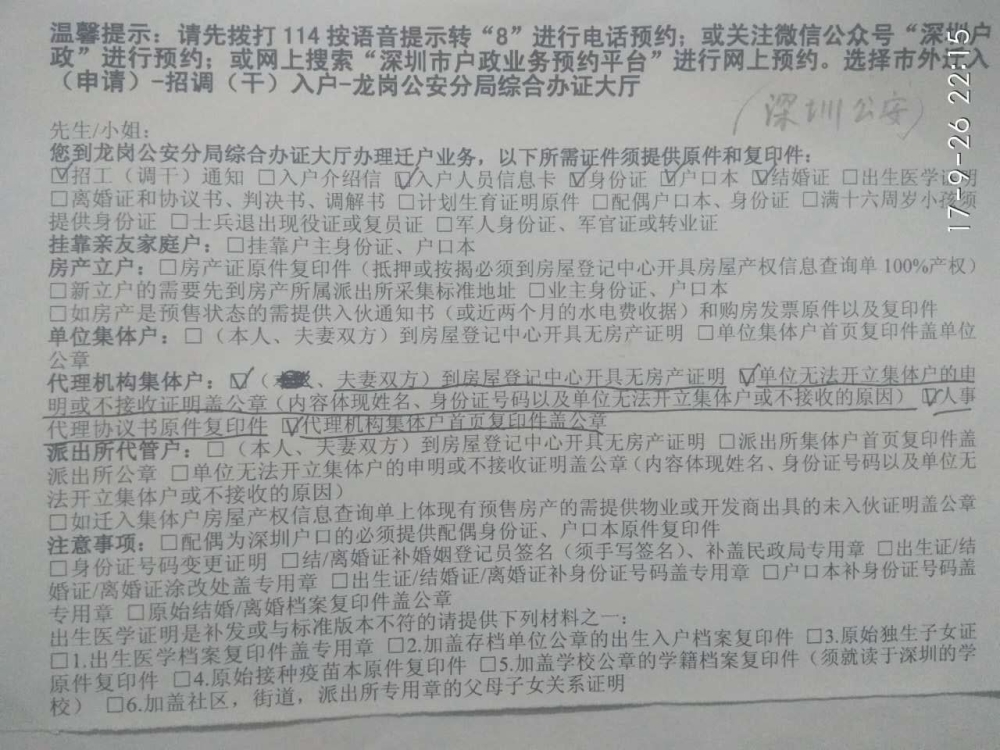 温馨提示：请先拨打 114 按语音提示转“8”进行电话预约；或关注微信公众号“深圳户
政”进行预约；或网上搜索“深圳市户政业务预约平台”进行网上预约。选择市外迁入
（申请）-招调（干）入户-龙岗公安分局综合办证大厅
（深圳公安）
先生/小姐：
您到龙岗公安分局综合办证大厅办理迁户业务，以下所需证件须提供原件和复印件：
☑招工（调干）通知 □入户介绍信 ☑入户人员信息卡 ☑身份证 ☑户口本 ☑结婚证 □出生医学证明
□离婚证和协议书、判决书、调解书 □计划生育证明原件 □配偶户口本、身份证 □满十六周岁小孩须
提供身份证 □士兵退出现役证或复员证 □军人身份证、军官证或转业证
挂靠亲友家庭户：□挂靠户主身份证、户口本
房产立户：□房产证原件复印件（抵押或按揭必须到房屋登记中心开具房屋产权信息查询单 100%产权）
□新立户的需要先到房产所属派出所采集标准地址 □业主身份证、户口本
□如房产是预售状态的需提供入伙通知书（或近两个月的水电费收据）和购房发票原件以及复印件
单位集体户：□（本人、夫妻双方）到房屋登记中心开具无房产证明 □单位集体户首页复印件盖单位
公章
代理机构集体户：☑（、夫妻双方）到房屋登记中心开具无房产证明 ☑单位无法开立集体户的申
明或不接收证明盖公章（内容体现姓名、身份证号码以及单位无法开立集体户或不接收的原因）☑人事
代理协议书原件复印件 ☑代理机构集体户首页复印件盖公章
派出所代管户：□（本人、夫妻双方）到房屋登记中心开具无房产证明 □派出所集体户首页复印件盖
派出所公章 □单位无法开立集体户的申明或不接收证明盖公章（内容体现姓名、身份证号码以及单位无
法开立集体户或不接收的原因）
□如迁入集体户房屋产权信息查询单上体现有预售房产的需提供物业或开发商出具的未入伙证明盖公章
注意事项：□配偶为深圳户口的必须提供配偶身份证、户口本原件复印件
□身份证号码变更证明 □结/离婚证补婚姻登记员签名（须手写签名）、补盖民政局专用章 □出生证/结
婚证/离婚证涂改处盖专用章 □出生证/结婚证/离婚证补身份证号码盖专用章 □户口本补身份证号码盖
专用章 □原始结婚/离婚档案复印件盖公章
出生医学证明是补发或与标准版本不符的请提供下列材料之一：
□1.出生医学档案复印件盖专用章 □2.加盖存档单位公章的出生入户档案复印件 □3.原始独生子女证
原件复印件 □4.原始接种疫苗本原件复印件 □5.加盖学校公章的学籍档案复印件（须就读于深圳的学
校） □6.加盖社区，街道，派出所专用章的父母子女关系证明
17-9-26 22:15